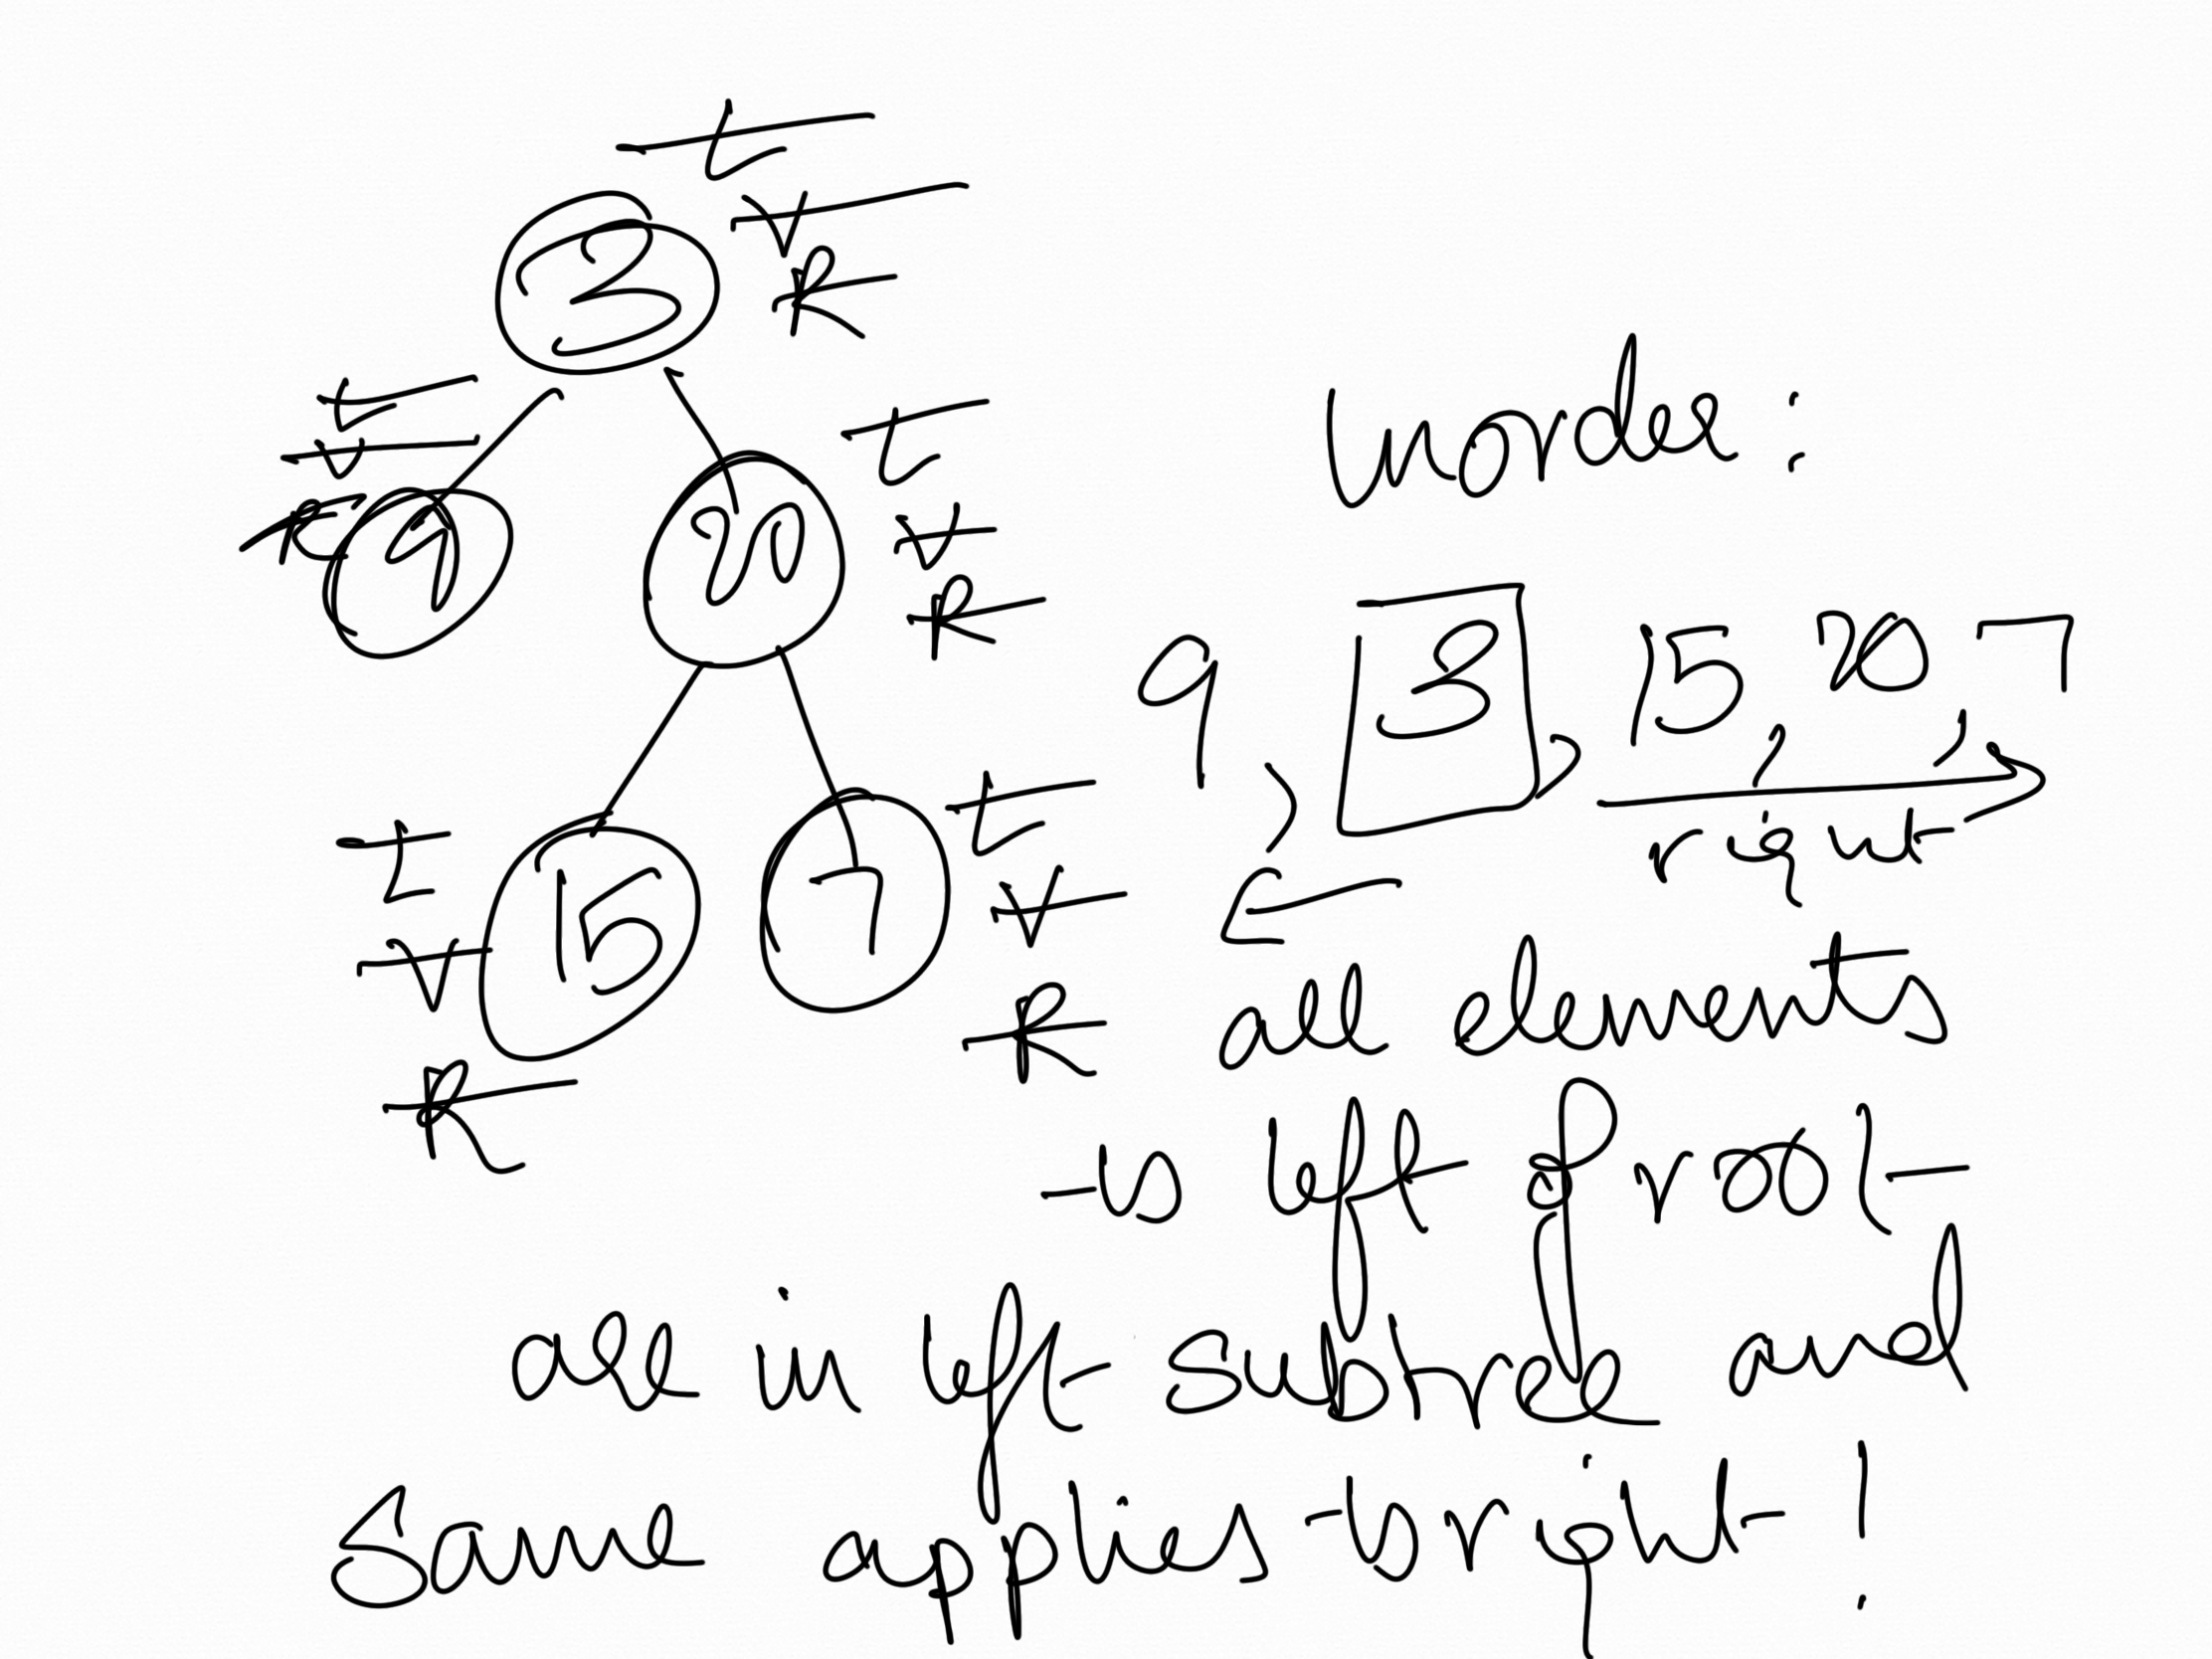 L
V
R
3
L
V
R
9
L
V
R
20
L
V
R
15
L
V
R
7
Inorder:
9, 3, 15, 20, 7
right
all elements
to left of root
are in left subtree and
same applies to right!